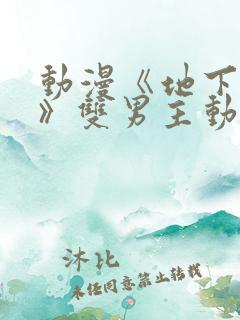 動漫《地下
》雙男主動
沐比
未經同意禁止轉載